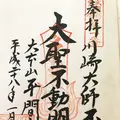 奉拝 川崎大師
大聖不動明
大本山平間
平成二十八年八月一日